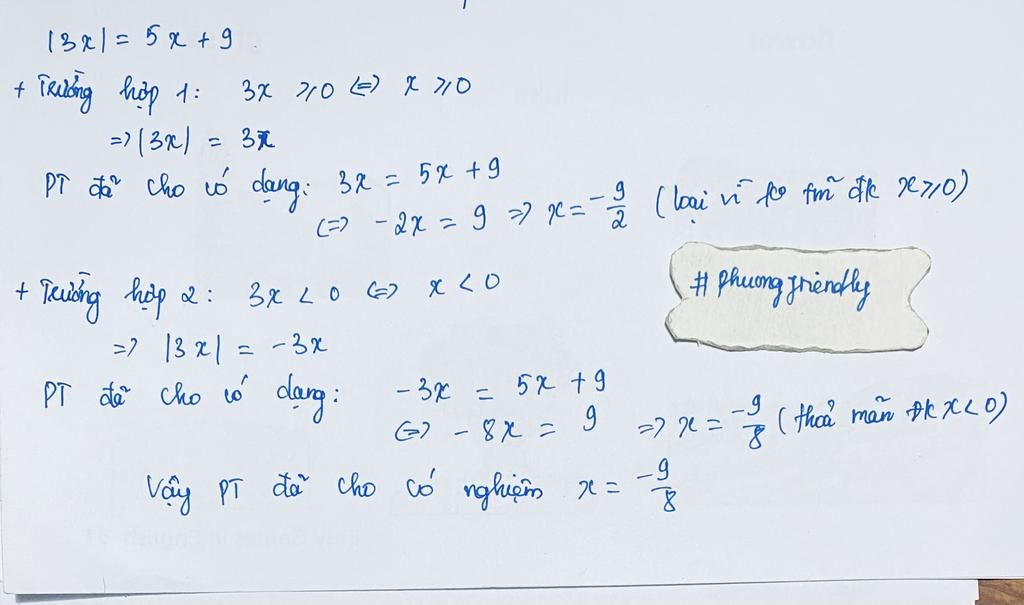 |3x| = 5x + 9
+ Trường hợp 1: 3x ⩾ 0 <=> x ⩾ 0
=> |3x| = 3x
PT đã cho có dạng: 3x = 5x + 9
<=> -2x = 9 => x = -9/2 (loại vì ko tmđk x ⩾ 0)
#phuongfriendly
+ Trường hợp 2: 3x < 0 <=> x < 0
=> |3x| = -3x
PT đã cho có dạng: -3x = 5x + 9
<=> -8x = 9 => x = -9/8 (thoả mãn đk x < 0)
Vậy PT đã cho có nghiệm x = -9/8